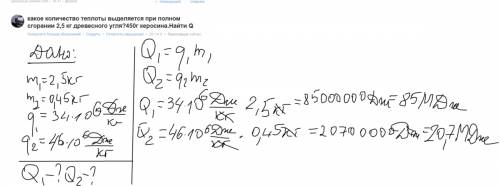 какое количество теплоты выделяется при полном
сгорании 2,5 кг древесного угля?450г керосина.Найти Q
Дано:
m₁=2,5кг
m₂=0,45кг
q₁=34·10⁶ Дж/кг
q₂=46·10⁶ Дж/кг
Q₁-? Q₂-?
Q₁=q₁m₁
Q₂=q₂m₂
Q₁=34·10⁶ Дж/кг · 2,5кг=85000000Дж=85МДж
Q₂=46·10⁶ Дж/кг · 0,45кг=20700000Дж=20,7МДж